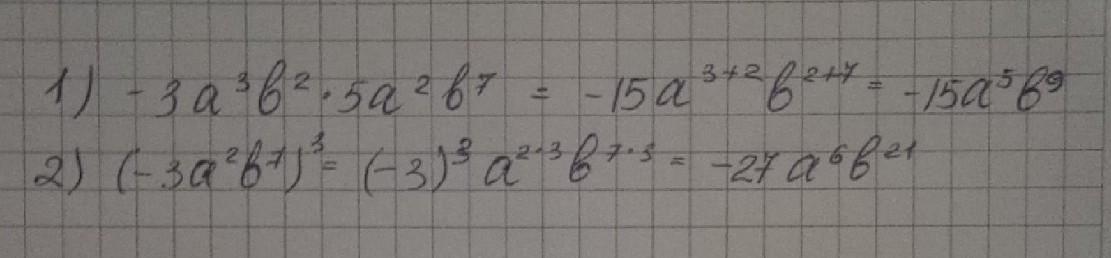 1) -3a³b²·5a²b⁷ = -15a³⁺²b²⁺⁷ = -15a⁵b⁹
2) (-3a²b⁷)³ = (-3)³a²˙³b⁷˙³ = -27a⁶b²¹